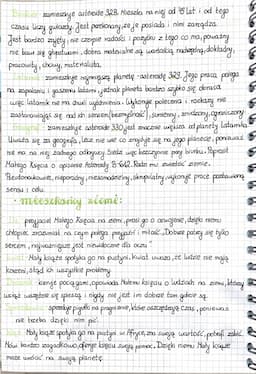 Bankier zamieszkuje asteroidę 328. Mieszka na niej od 15 lat i od tego
czasu liczy gwiazdy. Jest przekonany, że je posiada i nimi zarządza.
Jest bardzo zajęty, nie czerpie radości i pożytku z tego co ma, poważny
nie bawi się głupstwami, dobra materialne są wartością nadrzędną, dokładny,
pracowity, chciwy, materialista.
Latarnik zamieszkuje najmniejszą planetę - asteroidę 329. Jego praca polega
na zapalaniu i gaszeniu latarni, jednak planeta bardzo szybko się obraca
więc latarnik nie ma chwili wytchnienia. Wykonuje polecenia i rozkazy nie
zastanawiając się nad ich sensem (bezmyślność), sumienny, zmęczony, ograniczony
Geograf - zamieszkuje asteroidę 330, jest znacznie większa od planety Latarnika
Uważa się za geografa, lecz nie wie co znajduje się na jego planecie, ponieważ
nie ma na niej żadnego odkrywcy. Świata w zasadzie przy biurku. Poprosił
Małego Księcia o opisanie Asteroidy B-612. Radzi mu zwiedzić ziemię.
Pseudonaukowiec, niezaradny, niesamodzielny, skrupulatny, wykonuje pracę pozbawioną
sensu i celu.
• mieszkańcy ziemi:
przyjaciel Małego Księcia na ziemi, prosi go o oswojenie, dzięki niemu
chłopiec zrozumiał na czym polega przyjaźń i miłość. "Dobrze patrzy się tylko
sercem, najważniejsze jest niewidoczne dla oczu."
Kwiat Mały książę spotyka go na pustyni, kwiat uważa, że ludzie nie mają
korzeni, stąd ich wszystkie problemy
kieruje pociągami, opowiada Małemu Księciu o ludziach na ziemi, którzy
wciąż wszędzie się spieszą i nigdy nie jest im dobrze tam gdzie są.
sprzedaje pigułki na pragnienie, które oszczędzają czas, ponieważ
nie trzeba dzięki nim pić.
Mały książę spotyka go na pustyni w Afryce, zna swoją wartość, potrafi zabić
Mówi bardzo zagadkowo, oferuje księciu swoją pomoc. Dzięki niemu Mały książę
może wrócić na swoją planetę.